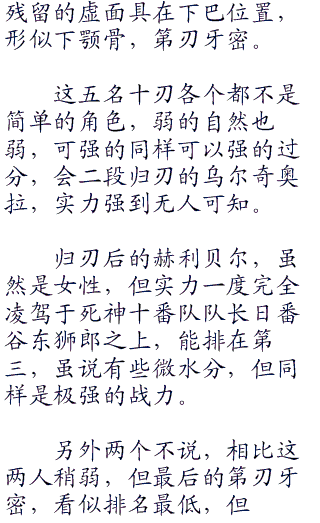 残留的虚面具在下巴位置，
形似下颚骨，第刃牙密。
这五名十刃各个都不是
简单的角色，弱的自然也
弱，可强的同样可以强的过
分，会二段归刃的乌尔奇奥
拉，实力强到无人可知。
归刃后的赫利贝尔，虽
然是女性，但实力一度完全
凌驾于死神十番队队长日番
谷东狮郎之上，能排在第
三，虽说有些微水分，但同
样是极强的战力。
另外两个不说，相比这
两人稍弱，但最后的第刃牙
密，看似排名最低，但